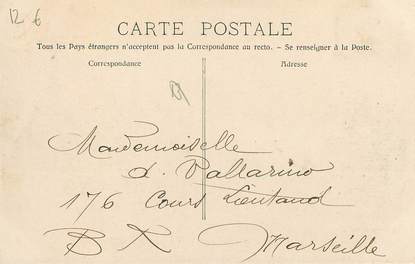 12 6
CARTE POSTALE
Tous les Pays étrangers n'acceptent pas la Correspondance au recto. - Se renseigner à la Poste.
Correspondance
Adresse
Mademoiselle
d. Pallarino
176 Cours Lieutaud
Marseille